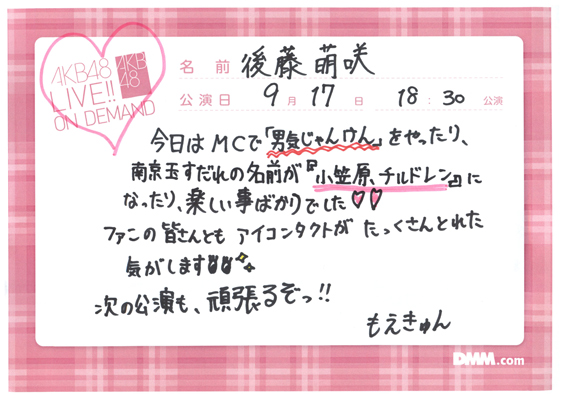 AKB48
LIVE!!
ON DEMAND
AKB
48
名前 後藤 萌咲
公演日 9月 17日 18:30公演
今日はMCで「男気じゃんけん」をやったり、
南京玉すだれの名前が『小笠原、チルドレン』に
なったり、楽しい事ばかりでした♡♡
ファンの皆さんとも アイコンタクトが たっくさんとれた
気がします
次の公演も、頑張るぞっ!!
もえきゅん
DMM.com